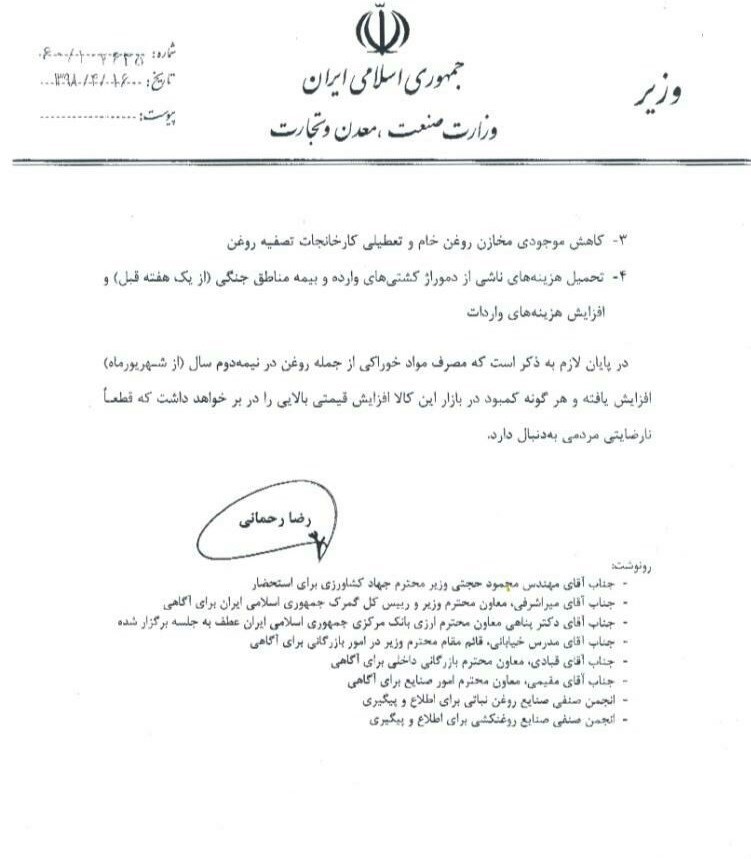 جمهوری اسلامی ایران
وزارت صنعت، معدن و تجارت
وزیر
شماره:
تاریخ: ۱۳۹۸/۴/۱۶
پیوست:
۳- کاهش موجودی مخازن روغن خام و تعطیلی کارخانجات تصفیه روغن
۴- تحمیل هزینه‌های ناشی از دموراژ کشتی‌های وارده و بیمه مناطق جنگی (از یک هفته قبل) و
افزایش هزینه‌های واردات
در پایان لازم به ذکر است که مصرف مواد خوراکی از جمله روغن در نیمه‌دوم سال (از شهریورماه)
افزایش یافته و هر گونه کمبود در بازار این کالا افزایش قیمتی بالایی را در بر خواهد داشت که قطعاً
نارضایتی مردمی به‌دنبال دارد.
رضا رحمانی
رونوشت:
- جناب آقای مهندس محمود حجتی وزیر محترم جهاد کشاورزی برای استحضار
- جناب آقای میراشرفی، معاون محترم وزیر و رییس کل گمرک جمهوری اسلامی ایران برای آگاهی
- جناب آقای دکتر پناهی معاون محترم ارزی بانک مرکزی جمهوری اسلامی ایران عطف به جلسه برگزار شده
- جناب آقای مدرس خیابانی، قائم مقام محترم وزیر در امور بازرگانی برای آگاهی
- جناب آقای قبادی، معاون محترم بازرگانی داخلی برای آگاهی
- جناب آقای مقیمی، معاون محترم امور صنایع برای آگاهی
- انجمن صنفی صنایع روغن نباتی برای اطلاع و پیگیری
- انجمن صنفی صنایع روغنکشی برای اطلاع و پیگیری